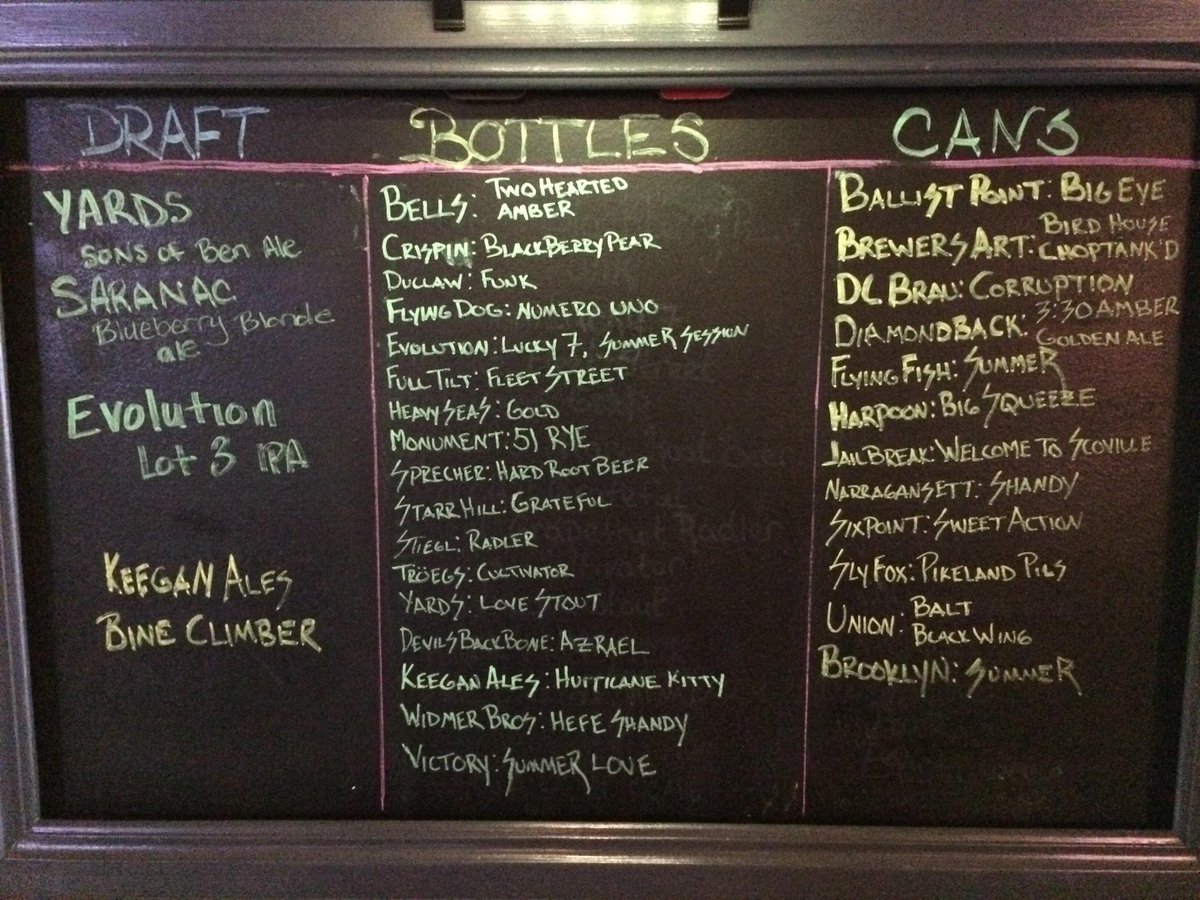 DRAFT
YARDS
SONS OF Ben Ale
SARANAC
Blueberry Blonde
ale
Evolution
Lot 3 IPA
KEEGAN ALES
BINE CLIMBER
BOTTLES
BELLS: TWO HEARTED
AMBER
CRISPIN: BLACKBERRY PEAR
DUCLAW: FUNK
FLYING DOG: NUMERO UNO
EVOLUTION: LUCKY 7, SUMMER SESSION
FULL TILT: FLEET STREET
HEAVY SEAS: GOLD
MONUMENT: 51 RYE
SPRECHER: HARD ROOT BEER
STARR HILL: GRATEFUL
STIEGL: RADLER
TRÖEGS: CULTIVATOR
YARDS: LOVE STOUT
DEVILS BACKBONE: AZRAEL
KEEGAN ALES: HURRICANE KITTY
WIDMER BROS: HEFE SHANDY
VICTORY: SUMMER LOVE
CANS
BALLIST POINT: BIG EYE
BREWERS ART: BIRD HOUSE
CHOPTANK'D
DC BRAU: CORRUPTION
DIAMONDBACK: 3:30 AMBER
GOLDEN ALE
FLYING FISH: SUMMER
HARPOON: BIG SQUEEZE
JAILBREAK: WELCOME TO SCOVILLE
NARRAGANSETT: SHANDY
SIXPOINT: SWEET ACTION
SLY FOX: PIKELAND PILS
UNION: BALT
BLACKWING
BROOKLYN: SUMMER